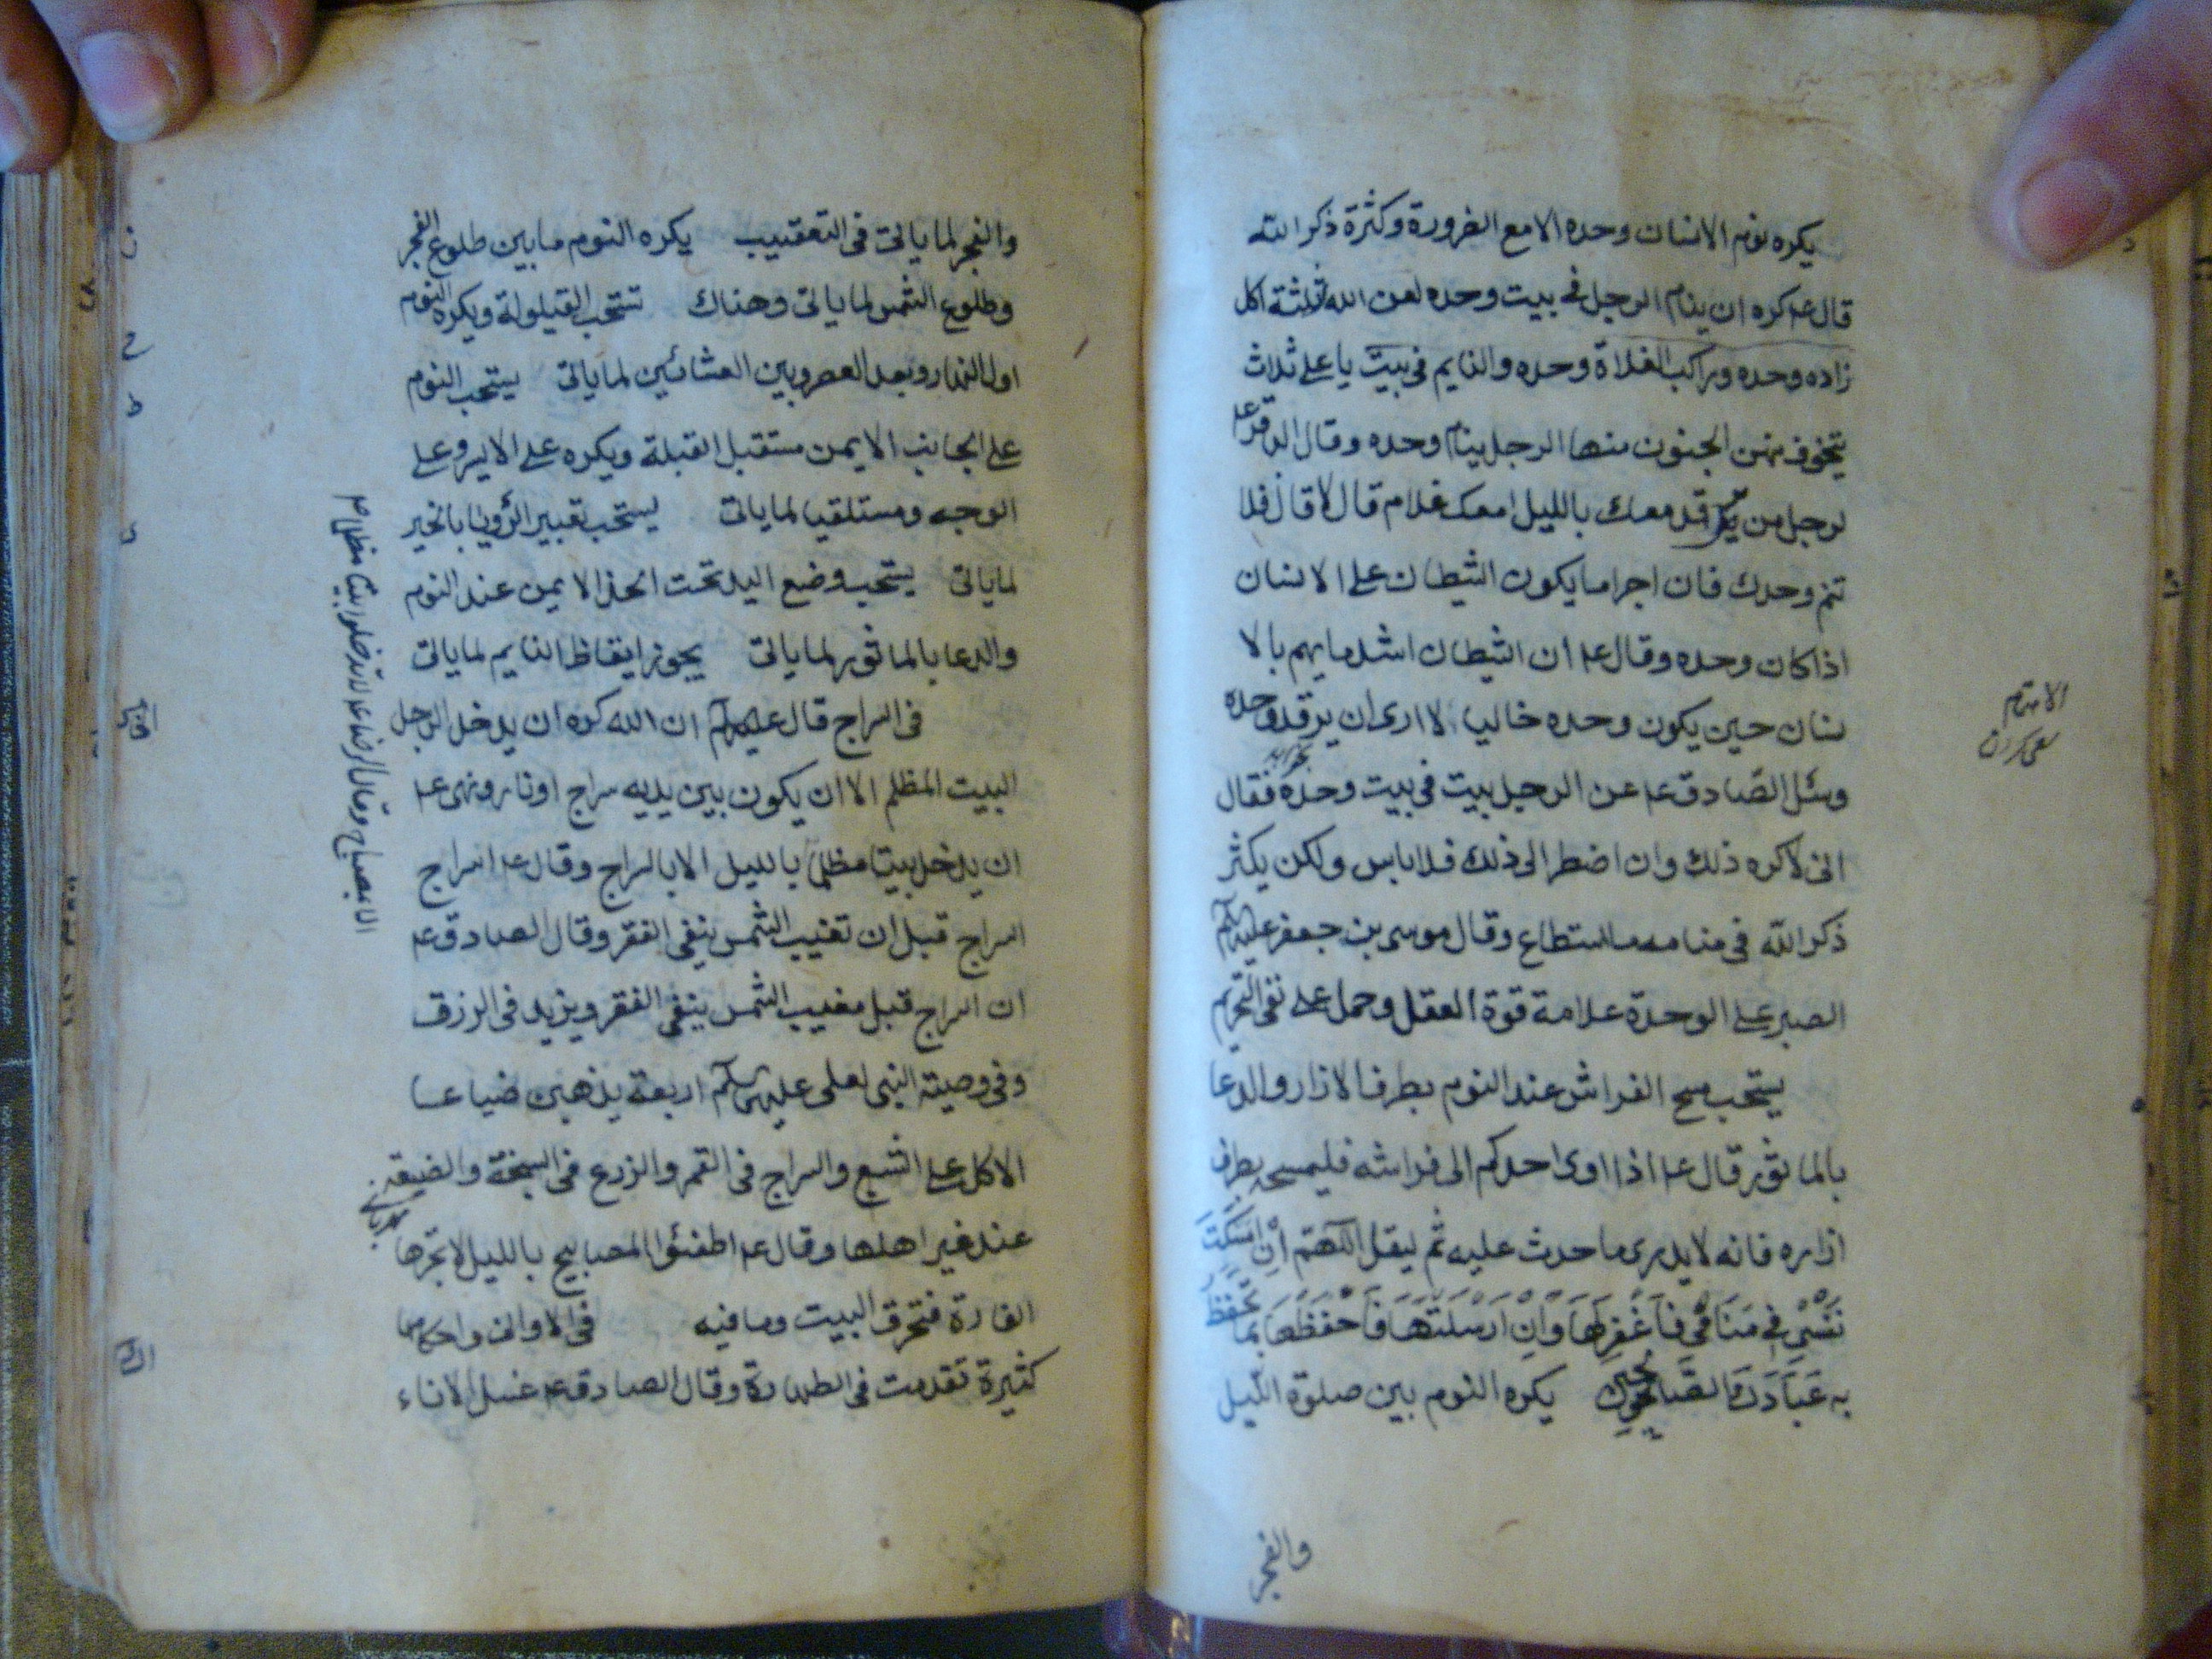 يكره نوم الانسان وحده الا مع الضرورة وكثرة ذكر الله
قال عم كره ان ينام الرجل في بيت وحده لعن الله ثلثة اكل
زاده وحده وراكب الفلاة وحده والنايم في بيت يا علي ثلاث
يتخوف منهن الجنون منها الرجل ينام وحده وقال الباقر عم
لرجل من يرقد معك بالليل امعك غلام قال لا قال فلا
تنم وحدك فان اجرا ما يكون الشيطان على الانسان
اذا كان وحده وقال عم ان الشيطان اشد ما يهم بالا
نسان حين يكون وحده خاليا لا ارى ان يرقد وحده
وسئل الصادق عم عن الرجل يبيت في بيت وحده فقال
انى لاكره ذلك وان اضطر الى ذلك فلا باس ولكن يكثر
ذكر الله في منامه ما استطاع وقال موسى بن جعفر عليه السلم
الصبر على الوحدة علامة قوة العقل وحمل على نفى التحريم
يستحب مسح الفراش عند النوم بطرف الازار والدعا
بالماثور قال عم اذا اوى احدكم الى فراشه فليمسحه بطرف
ازاره فانه لا يدرى ما حدث عليه ثم ليقل اللهم اِن امسكت
نَفْسِى فِي مَنَامِي فَاغْفِر لَهَا وَاِنْ اَرْسَلْتَهَا فَاحْفَظْهَا بِمَا تحفظ
به عِبَادَكَ الصَّالحين يكره النوم بين صلوة الليل
والفجر
الاهتمام
سعى كردن
والفجر لما ياتى فى التعقيب يكره النوم ما بين طلوع الفجر
وطلوع الشمس لما ياتى وهناك تستحب القيلولة ويكره النوم
اول النهار وبعد العصر وبين العشائين لما ياتى يستحب النوم
على الجانب الايمن مستقبل القبلة ويكره على الايسر وعلى
الوجه ومستلقيا لما ياتى يستحب تعبير الرؤيا بالخير
لما ياتى يستحب وضع اليد تحت الخد الايمن عند النوم
والدعا بالماثور لما ياتى يجوز ايقاظ النايم لما ياتى
فى السراج قال عليه السلم ان الله كره ان يدخل الرجل
البيت المظلم الا ان يكون بين يديه سراج او نار ونهى عم
ان يدخل بيتا مظلما بالليل الا بالسراج وقال عم اسراج
السراج قبل ان تغيب الشمس ينفى الفقر وقال الصادق عم
ان السراج قبل مغيب الشمس ينفى الفقر ويزيد فى الرزق
وفى وصيته النبى لعلى عليهما السلم اربعة يذهبن ضياعا
الاكل على الشبع والسراج فى القمر والزرع فى السبخة والضيعة
عند غير اهلها وقال عم اطفئوا المصابيح بالليل لا تجرها
الفارة فتحرق البيت وما فيه فى الاوانى واحكامها
كثيرة تقدمت فى الطهارة وقال الصادق عم غسل الاناء
وقال الرضا عم لا تدخلوا بيتا مظلما
الا بمصباح